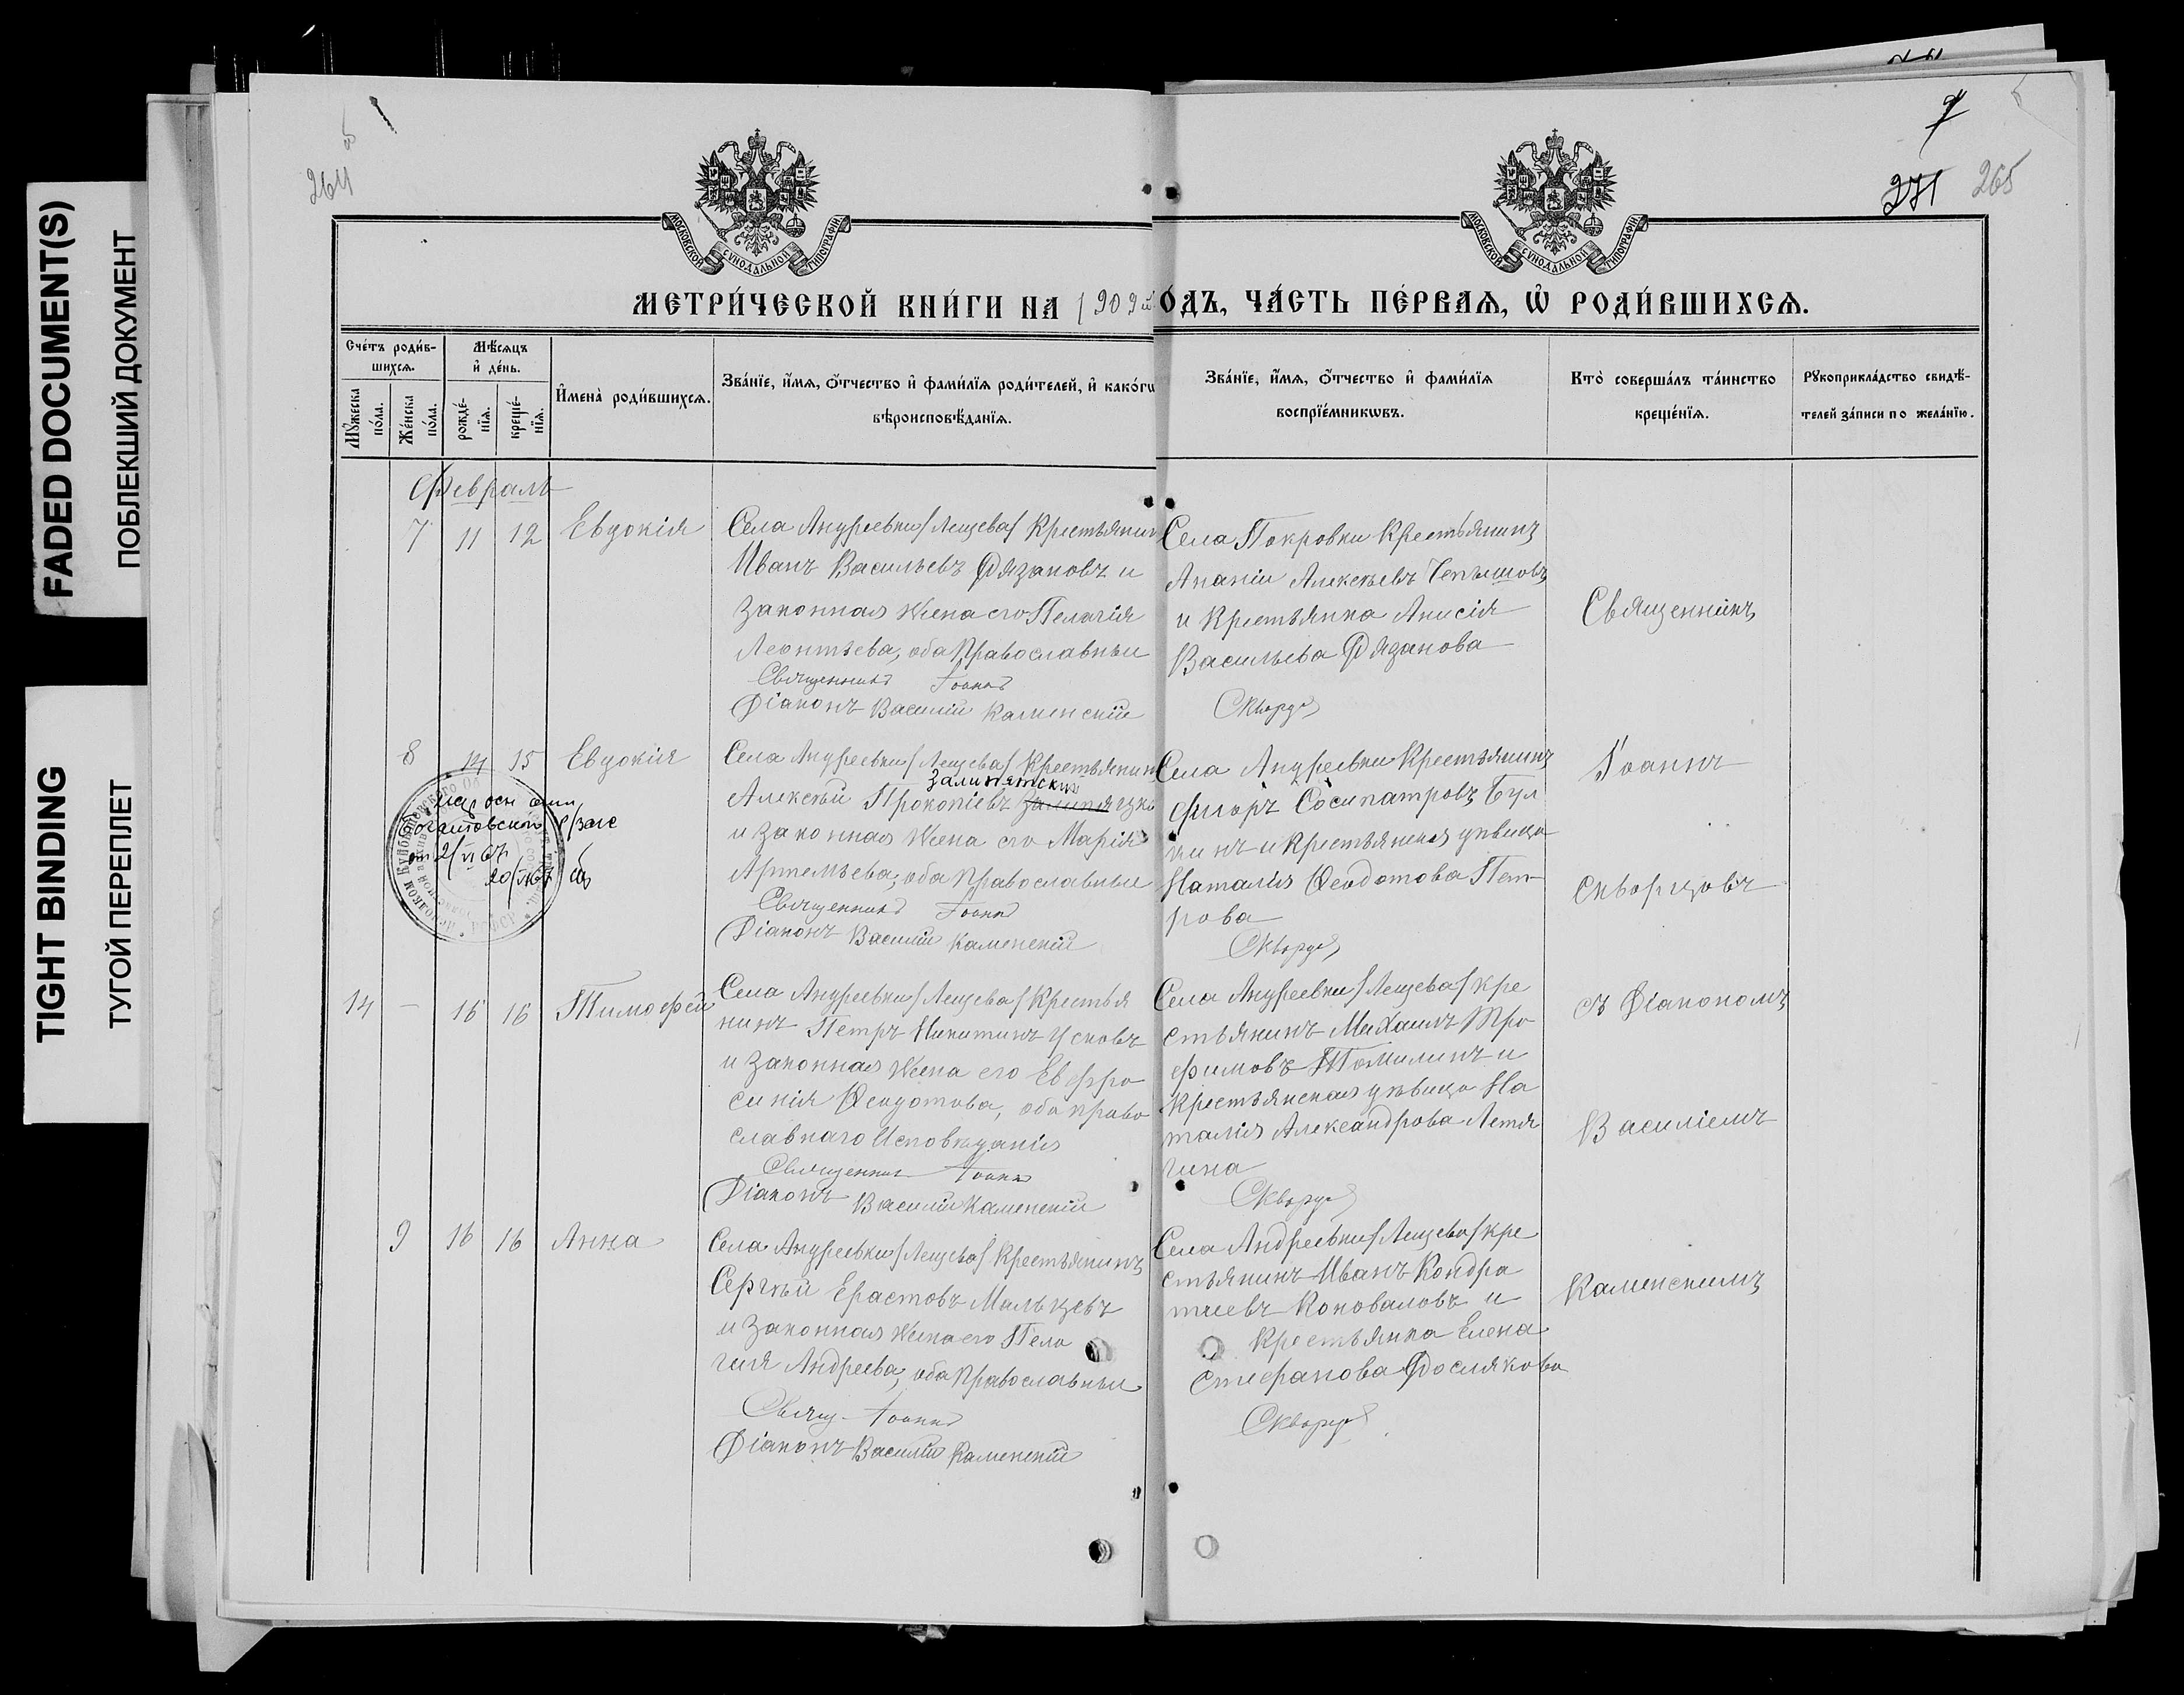 FADED DOCUMENT(S)
ПОБЛЕКШИЙ ДОКУМЕНТ
TIGHT BINDING
ТУГОЙ ПЕРЕПЛЕТ
264
об
7
271 265
МОСКОВСКОЙ СѴНОДАЛЬНОЙ ТИПОГРАФІИ
МОСКОВСКОЙ СѴНОДАЛЬНОЙ ТИПОГРАФІИ
МЕТРИ́ЧЕСКОЙ КНИ́ГИ НА 1909й
О́ДЪ, ЧА́СТЬ ПЕ́РВАѦ, Ѽ РОДИ́ВШИХСѦ.
Сче́тъ роди́в-
шихсѧ.
Мꙋ́жеска
по́ла.
Же́нска
по́ла.
Мѣ́сѧцъ
и҆ де́нь.
рожде́-
нїѧ.
креще́-
нїѧ.
И҆мена̀ роди́вшихсѧ.
Зва́нїе, и҆́мѧ, ѻ҆́тчество и҆ фами́лїѧ роди́телей, и҆ како́гѡ
вѣроисповѣ́данїѧ.
Зва́нїе, и҆́мѧ, ѻ҆́тчество и҆ фами́лїѧ
воспрїе́мникѡвъ.
Кто̀ соверша́лъ та́инство
креще́нїѧ.
Рꙋкоприкла́дство свидѣ́-
телей за́писи по жела́нїю.
Февраль
7 11 12 Евдокія
Села Андреевки/Лещева/ Крестьянин
Иванъ Васильевъ Рязановъ и
законная жена его Пелагія
Леонтьева, оба Православные
Священникъ Іоаннъ
Діаконъ Василій Каменскій
Села Покровки Крестьянинъ
Ананій Алексѣевъ
и Крестьянка Анисія
Васильева Рязанова
Скворц
Священникъ
8 14 15 Евдокія
Села Андреевки/Лещева/ Крестьянин
Залипятскій
Алексѣй Прокопіевъ
и законная жена его Марія
Артемьева, оба Православные
Священникъ Іоаннъ
Діаконъ Василій Каменскій
Села Андреевки Крестьянинъ
Сосипатровъ Бул
кинъ и Крестьянская дѣвица
Наталія Ѳеодотова Пет
рова
Скворц
Іоаннъ
Скворцовъ
14 – 15 16 Тимофей
Села Андреевки/Лещева/ Крестья
нинъ Петръ Никитинъ Усковъ
и законная жена его Евфро
синія Ѳеодотова, оба право
славнаго Исповѣданія
Священникъ Іоаннъ
Діаконъ Василій Каменскій
Села Андреевки/Лещева/ кре
стьянинъ Михаилъ Тро
фимовъ Томилинъ и
Крестьянская дѣвица На
талія Александрова Летя
гина
Скворц
съ Діакономъ
Василіемъ
9 16 16 Анна
Села Андреевки/Лещева/ Крестьянинъ
Сергѣй Ерастовъ Мальцевъ
и законная жена его Пела
гія Андреева, оба Православные
Свящ. Іоаннъ
Діаконъ Василій Каменскій
Села Андреевки/Лещева/ кре
стьянинъ Иванъ Кондра
тьевъ Коноваловъ и
Крестьянка Елена
Стефанова Рослякова
Скворц
Каменскимъ